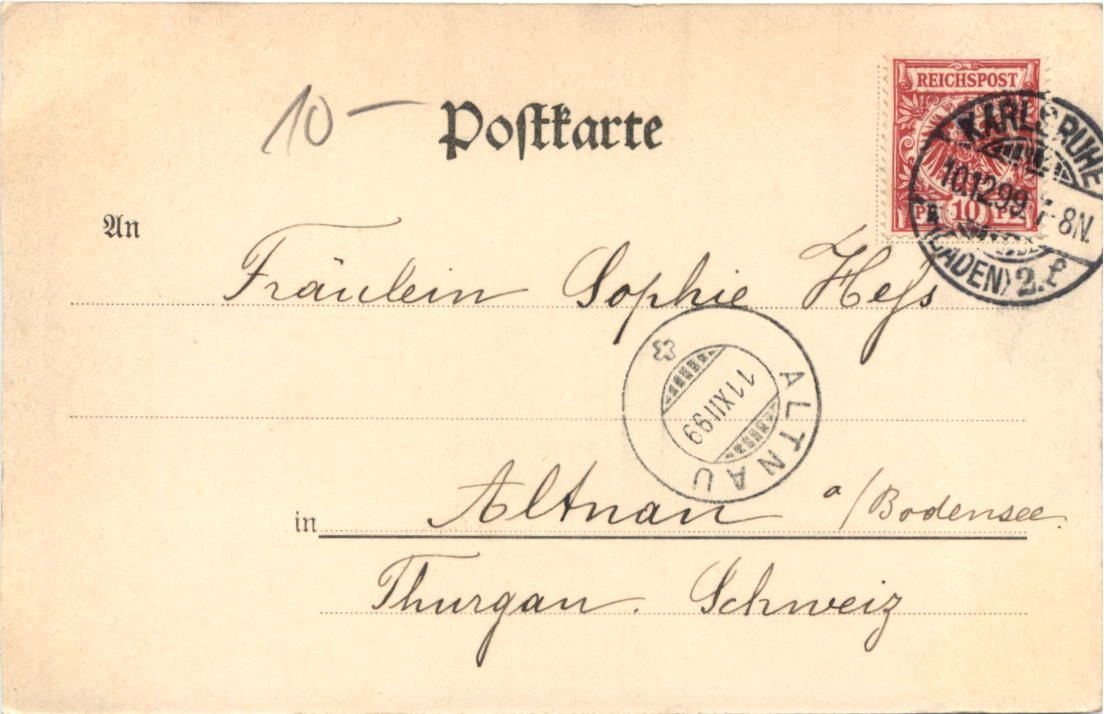 10-
Postkarte
REICHSPOST
PF 10 PF
KARLSRUHE
10.12.99. 7-8N.
(BADEN) 2.
An
Fräulein Sophie Heß
ALTNAU
11 XII 99
in Altnau a/Bodensee.
Thurgau. Schweiz